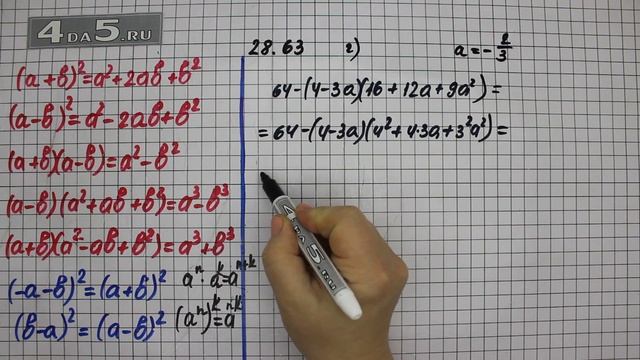 4DA5.RU
(a+b)²=a²+2ab+b²
(a-b)²=a²-2ab+b²
(a+b)(a-b)=a²-b²
(a-b)(a²+ab+b²)=a³-b³
(a+b)(a²-ab+b²)=a³+b³
(-a-b)²=(a+b)²
(b-a)²=(a-b)²
aⁿ·aᵏ=aⁿ⁺ᵏ
(aⁿ)ᵏ=aⁿᵏ
28.63 г) a=-2/3
64-(4-3a)(16+12a+9a²)=
=64-(4-3a)(4²+4·3a+3²a²)=
4DA5.RU